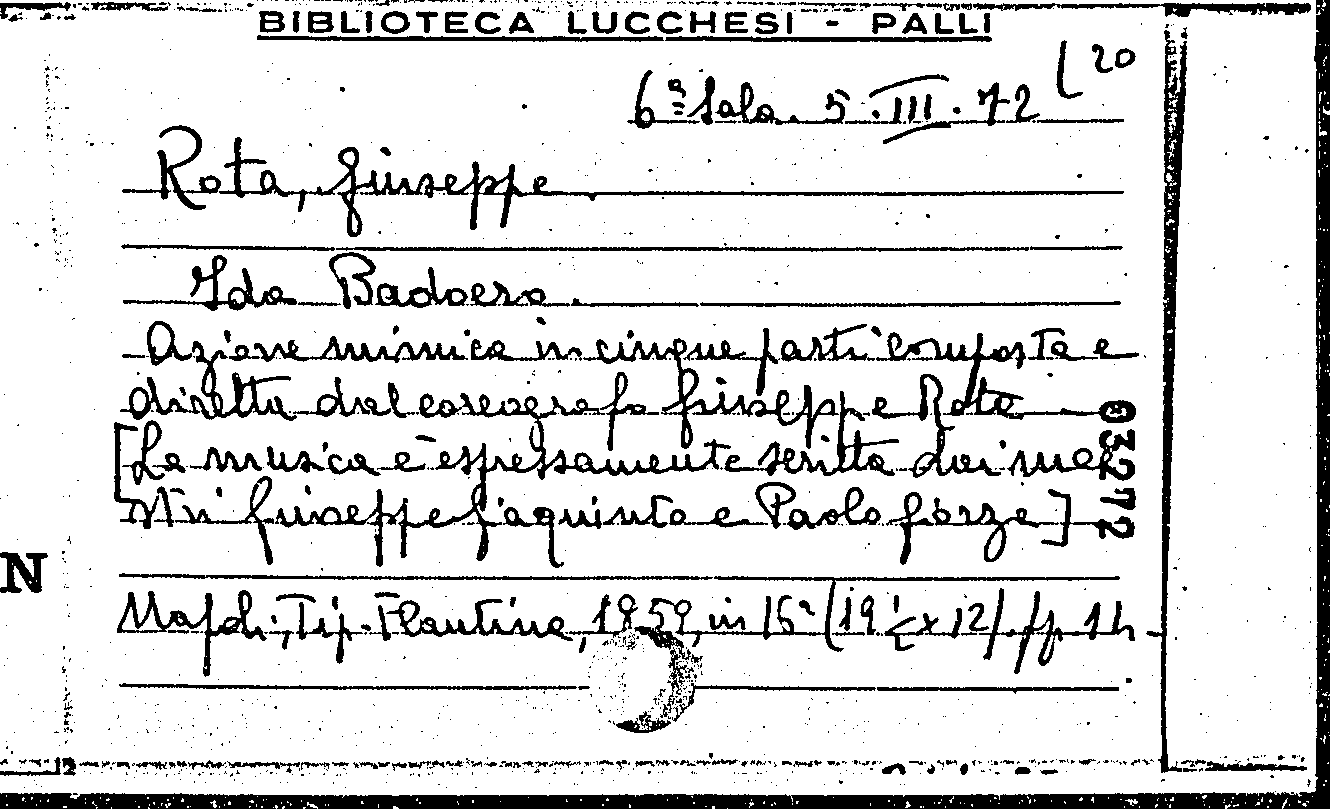 BIBLIOTECA LUCCHESI - PALLI
6ª Sala. 5.III.72(20
Rota, Giuseppe.
Ida Badoero.
Azione mimica in cinque parti composta e
diretta dal coreografo Giuseppe Rota -
[La musica è espressamente scritta dai mae
stri Giuseppe Giaquinto e Paolo Giorza]
03272
N
Napoli, Tip. Plautina, 1859, in 16° (19½ x 12). pp. 14